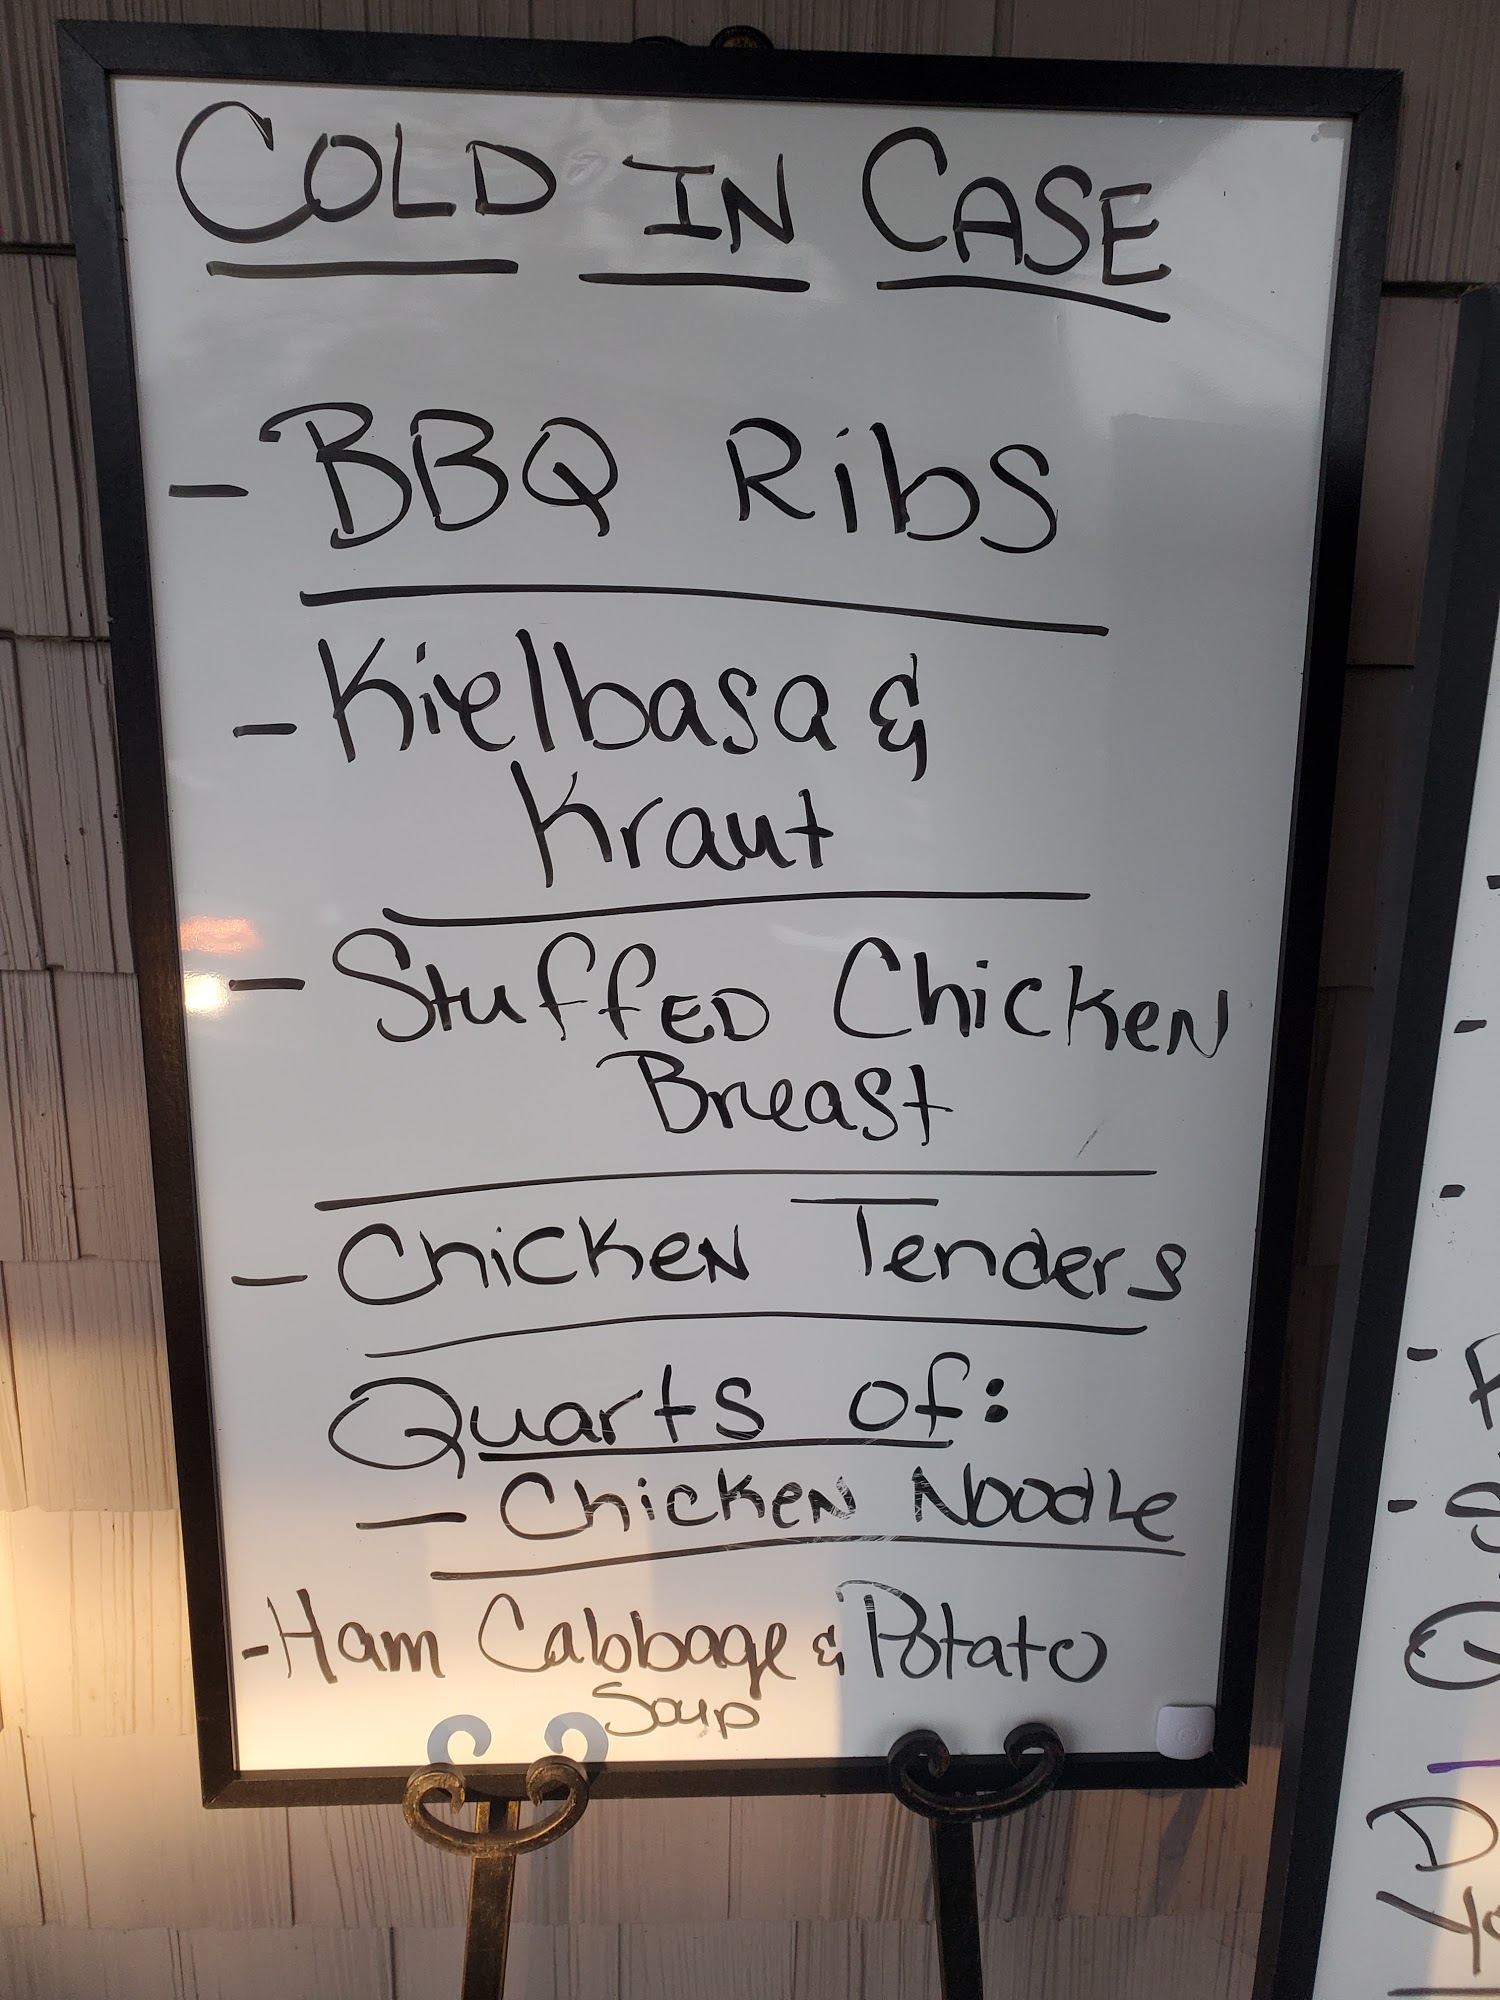 COLD IN CASE
- BBQ Ribs
- Kielbasa &
Kraut
- Stuffed Chicken
Breast
- Chicken Tenders
Quarts of:
- Chicken Noodle
- Ham Cabbage & Potato
Soup